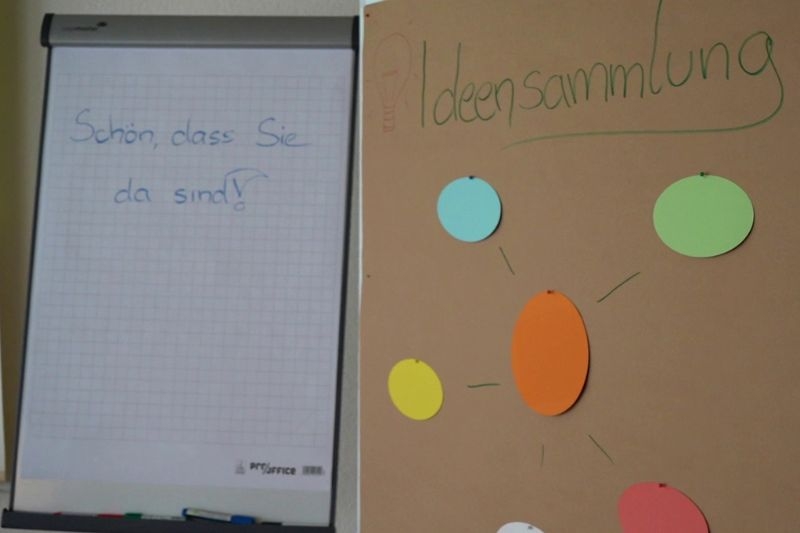 Schön, dass Sie
da sind!
PRO/OFFICE
Ideensammlung